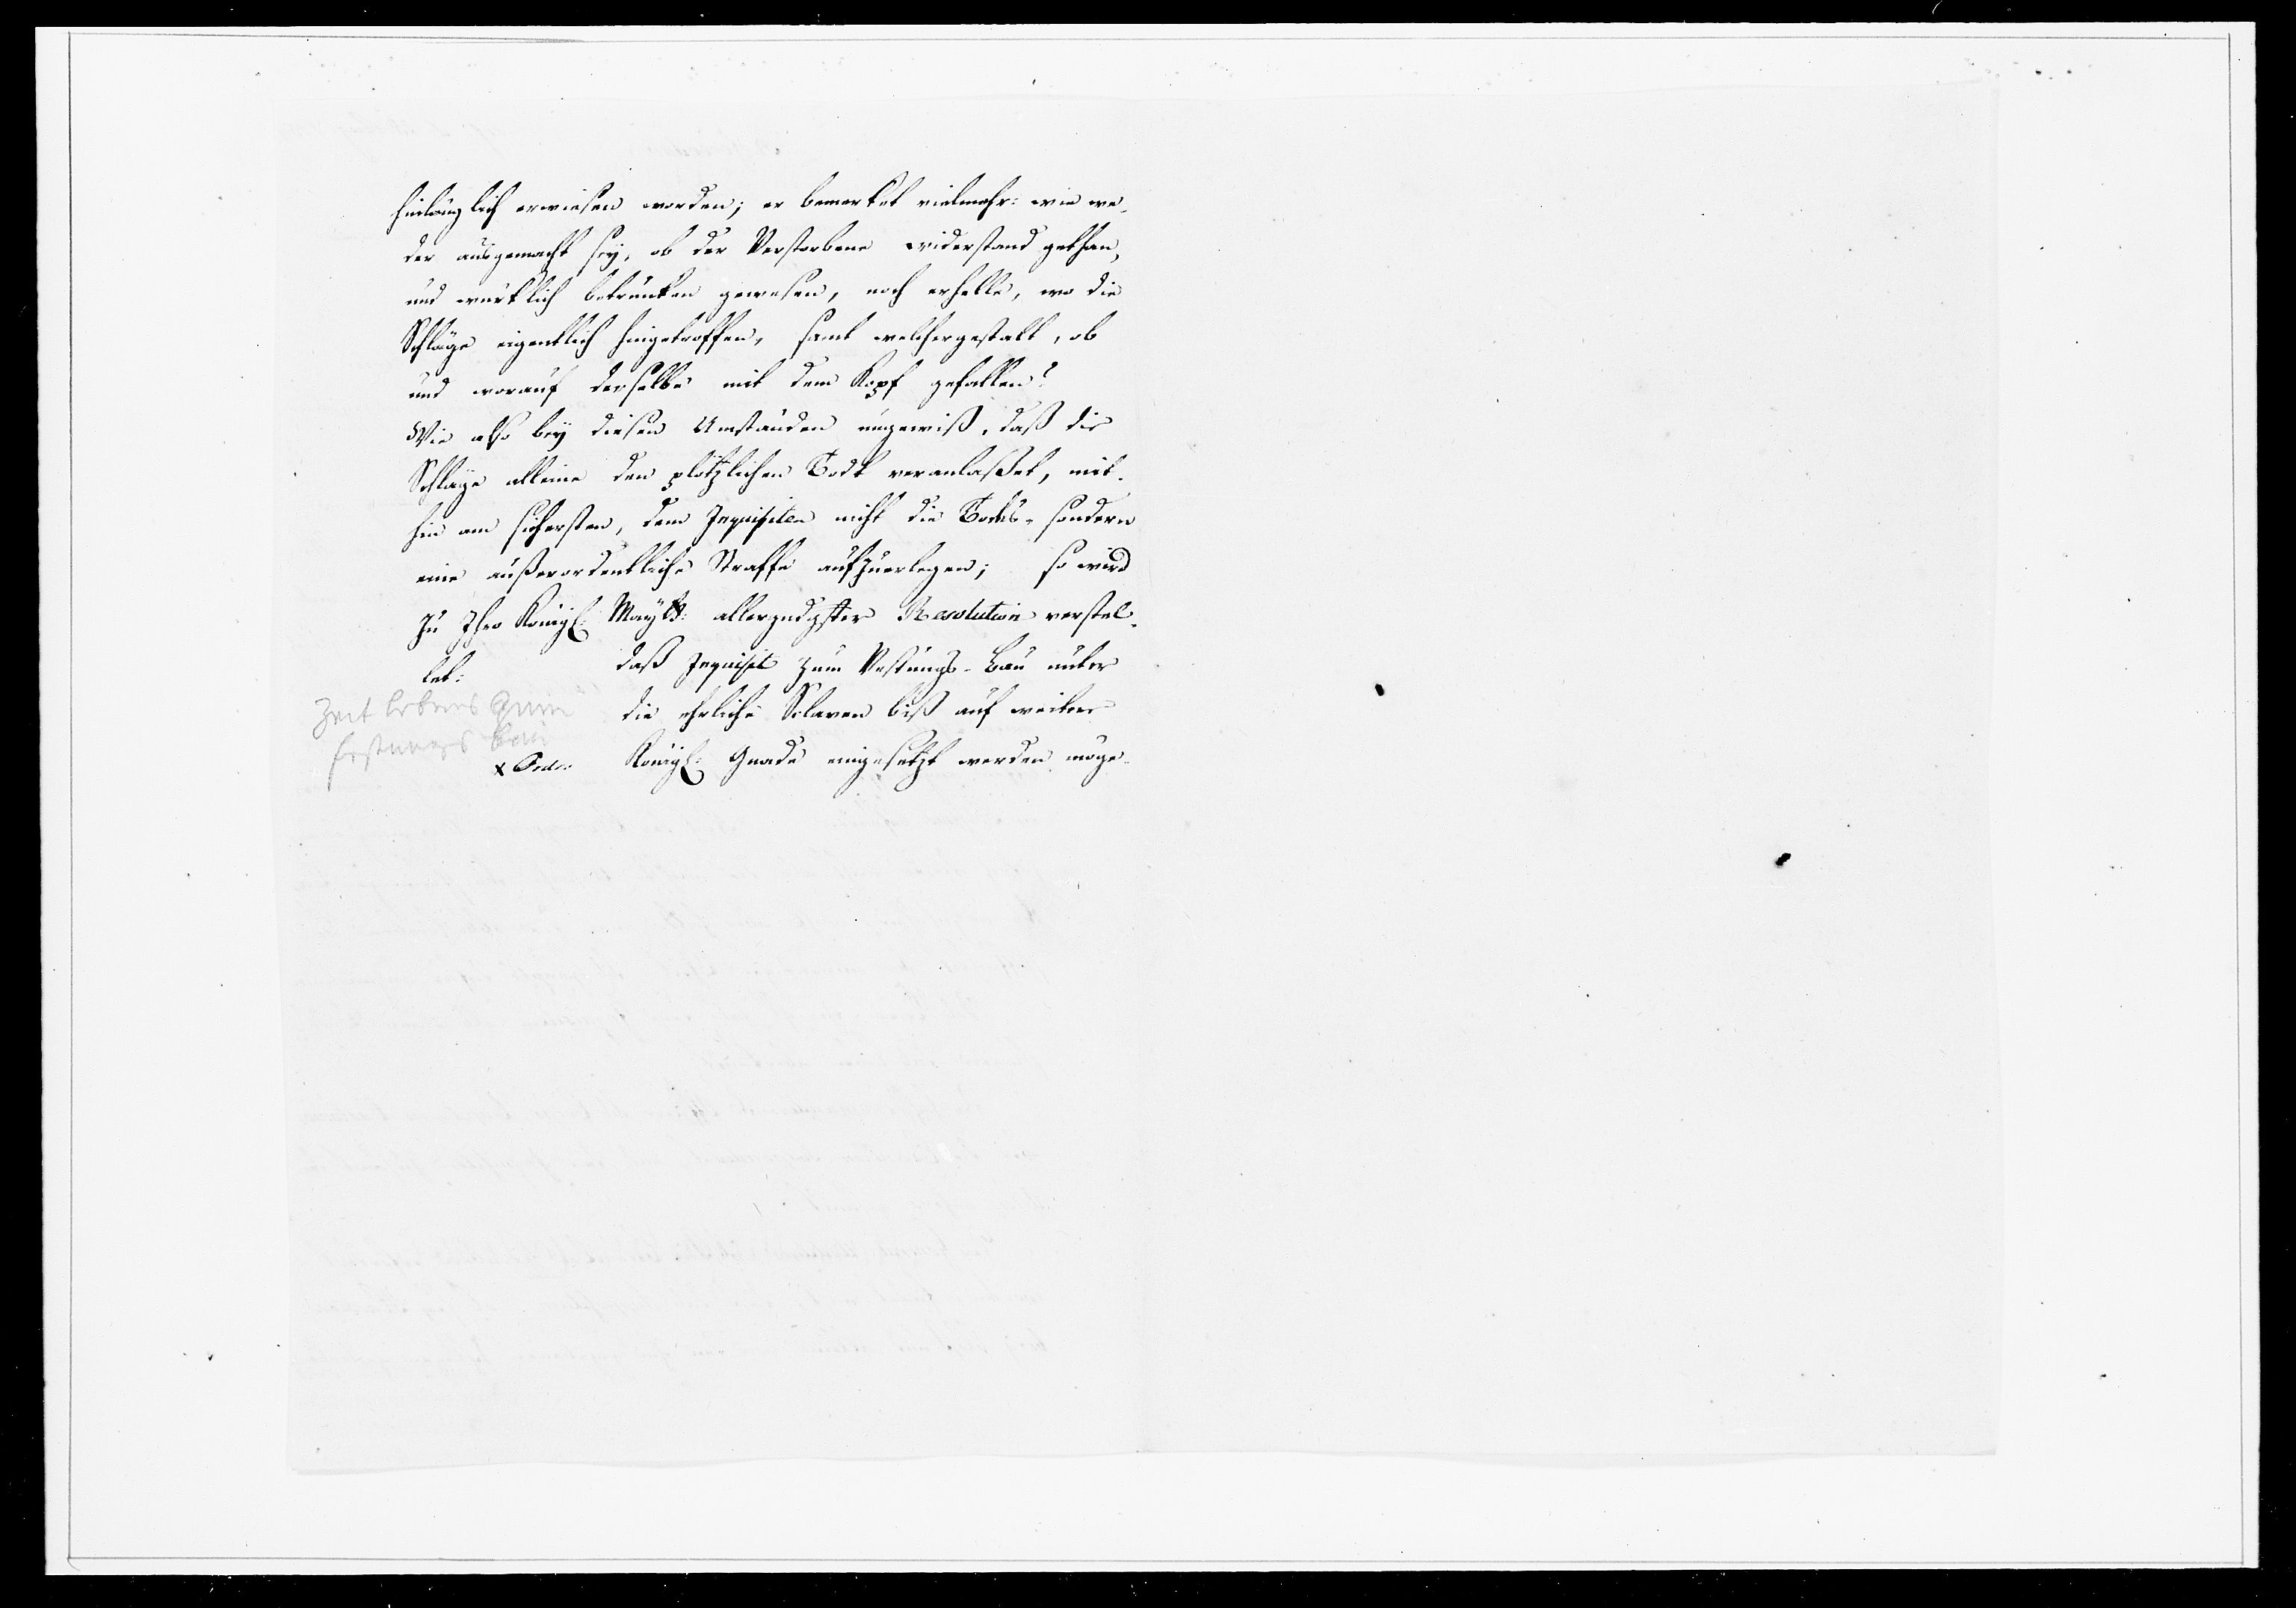 hinlänglich erwiesen worden; er bemerket vielmehr: wie we-
der ausgemacht sey, ob der Verstorbene widerstand gethan,
und würklich betrunken gewesen, noch erhelle, wo die
Schläge eigentlich hingetroffen, samt welchergestalt, ob
und worauf derselbe mit dem Kopf gefallen?
Wie also bey diesen Umständen ungewiß, daß die
Schläge alleine den plötzlichen Todt veranlaßet, mit-
hin am sichersten, dem Inquisiten nicht die Todes- sondern
eine außerordentliche Straffe aufzuerlegen; so wird
zu Ihro Königl: Maytt: allergndgster Resolution verstel-
let: daß Inquisit zum Vestungs-Bau unter
die ehrliche Sclaven biß auf weitere
Königl: Gnade eingesetzt werden möge.
Zeit lebens zum
festungs bau
x Order